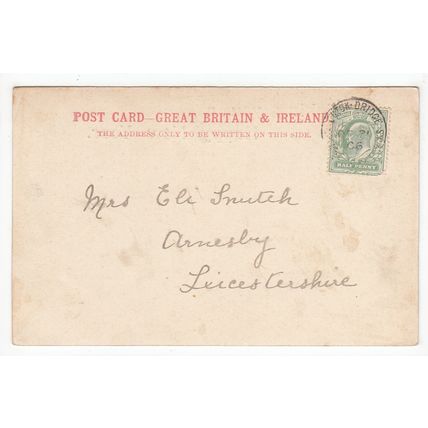 POST CARD—GREAT BRITAIN & IRELAND
THE ADDRESS ONLY TO BE WRITTEN ON THIS SIDE.
HALF PENNY
Mrs Eli
Arnesby
Leicestershire